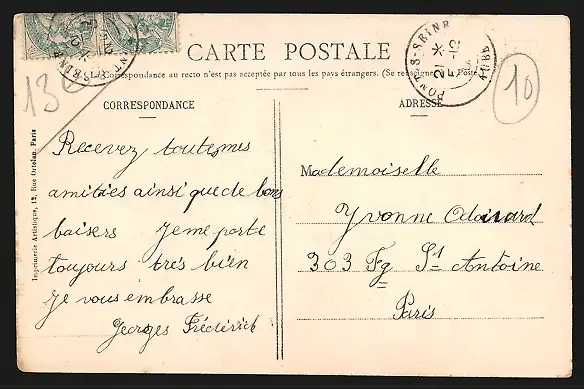 CARTE POSTALE
La Correspondance au recto n'est pas acceptée par tous les pays étrangers. (Se renseigner à la Poste)
CORRESPONDANCE
ADRESSE
PONT-S-SEINE
21
AUBE
13
10
Recevez toutes mes
amitiés ainsi que de bons
baisers Je me porte
toujours très bien
Je vous embrasse
Georges Fréderick
Mademoiselle
Yvonne
303 Fg St Antoine
Paris
Imprimerie Artistique, 12, Rue Ortolan, Paris